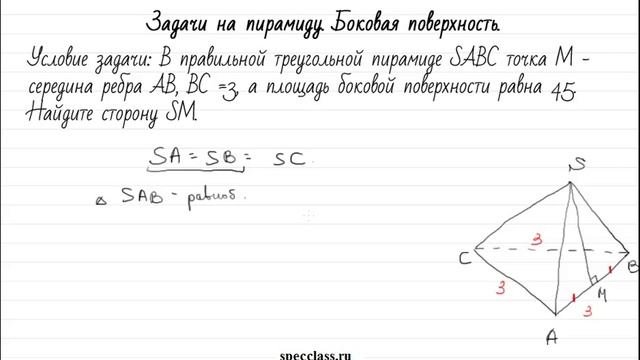 Задачи на пирамиду. Боковая поверхность.
Условие задачи: В правильной треугольной пирамиде SABC точка M -
середина ребра AB, BC =3, а площадь боковой поверхности равна 45.
Найдите сторону SM.
SA = SB = SC.
△ SAB - равноб.
S
C
3
B
3
M
3
A
specclass.ru